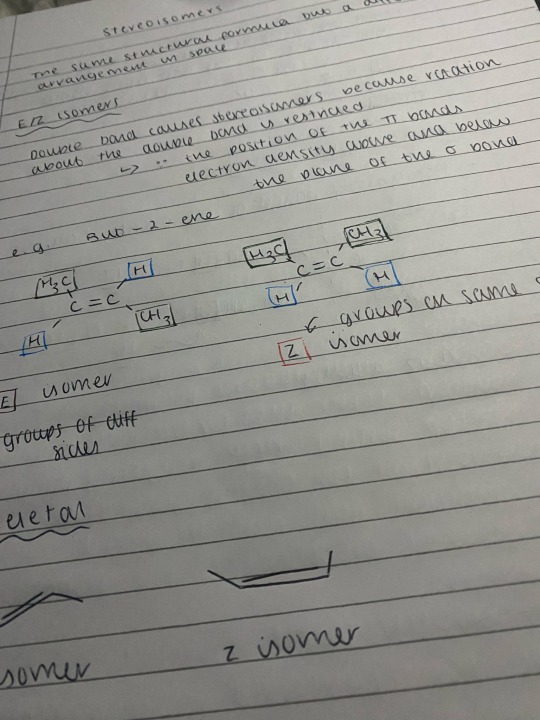 stereoisomers
The same structural formula but a
arrangement in space
E/Z isomers
Double bond causes stereoisomers because rotation
about the double bond is restricted
↳ ∵ the position of the π bonds
electron density above and below
the plane of the σ bond
e.g. But-2-ene
H₃C H H₃C CH₃
C=C C=C
H CH₃ H H
groups on same
E isomer Z isomer
groups of diff
sides
eletal
somer z isomer